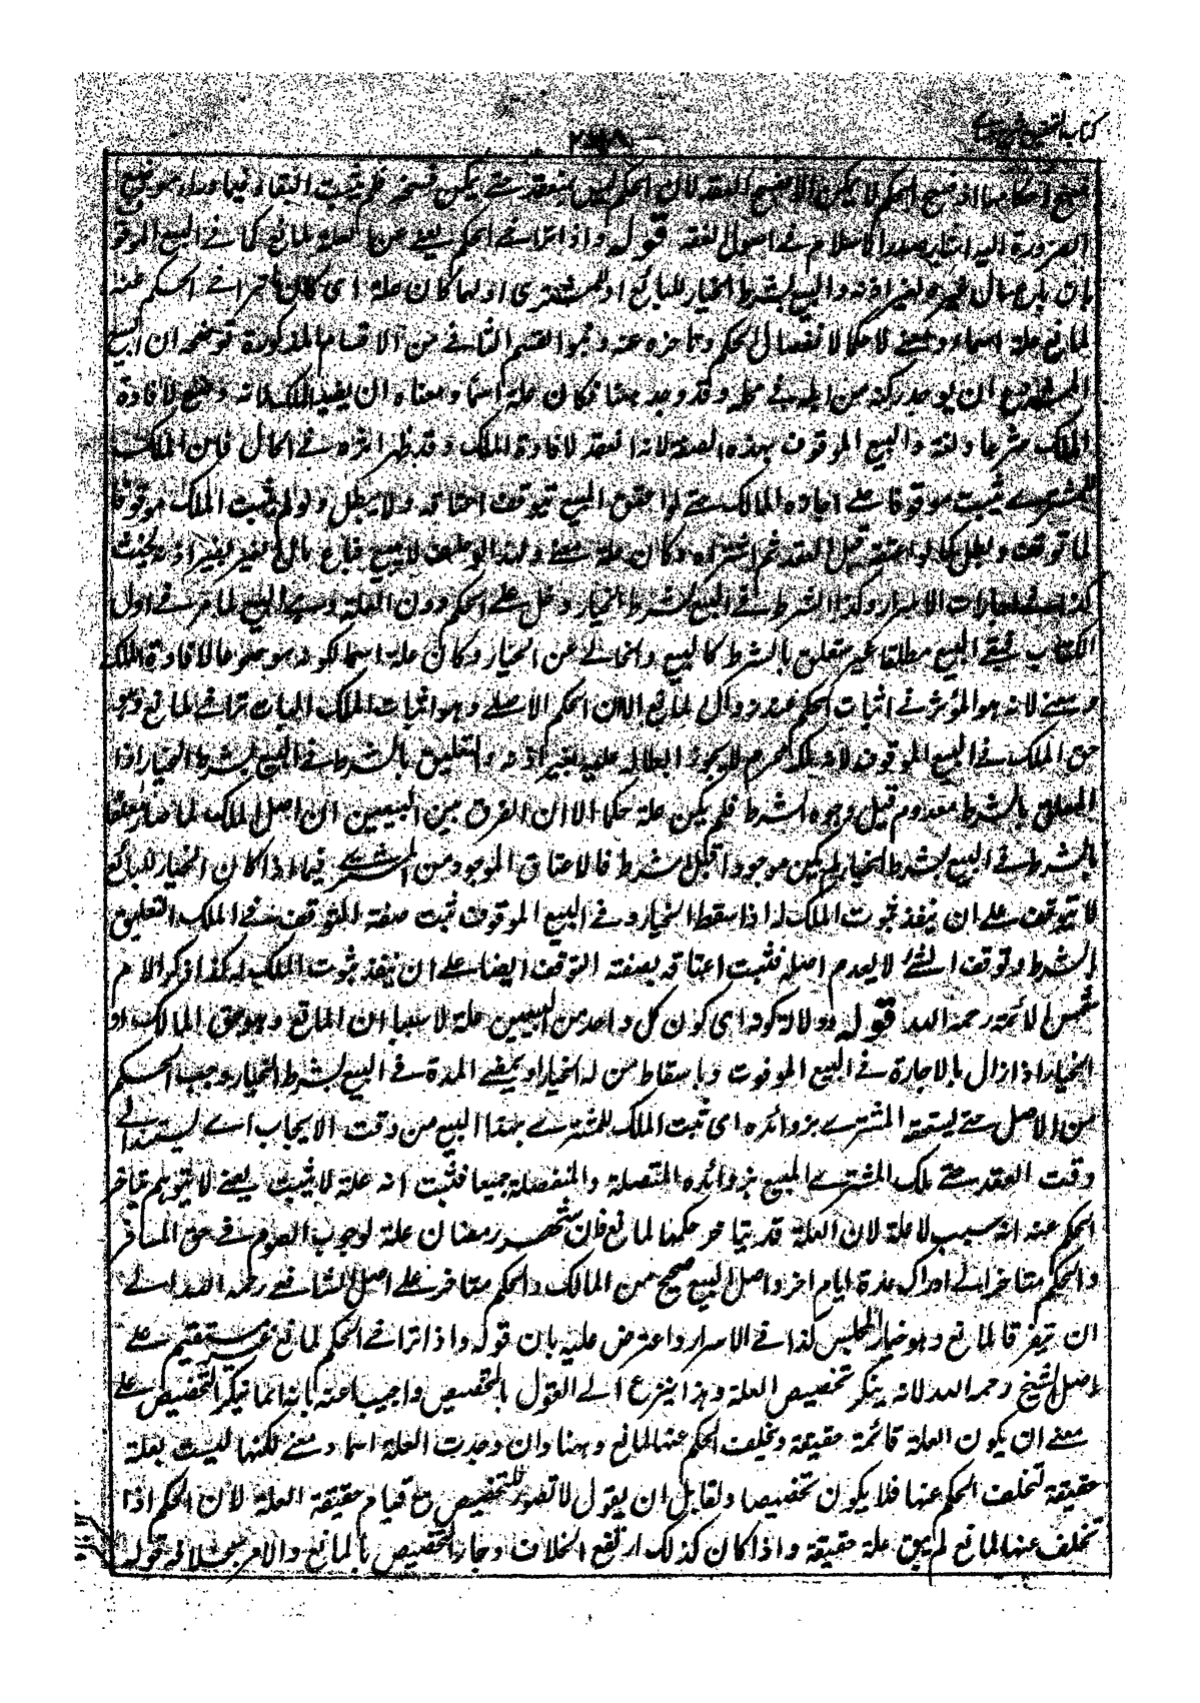 فسخ احكامها اذ فسخ الحكم لا يمكن الا بفسخ العقد لان الحكم ليس بمنعقد حتى يمكن فسخه فلم يثبت البقاء فيما وراء موضع
الضرورة اليه اشار صدر الاسلام فى اصول الفقه قوله واذا تراخى الحكم يعنى عن العلة لمانع كما فى البيع الموقوف
بان باع مال غيره بغير اذنه والبيع بشرط الخيار للبائع او للمشترى او لهما كان علة اى كان ما تراخى الحكم عنه
لمانع علة اسما ومعنى لا حكما لانفصال الحكم وتأخره عنه وهو القسم الثانى من الاقسام المذكورة توضيحه ان البيع
المشروع ان يوجد ركنه من اهله فى محله وقد وجد ههنا فكان علة اسما ومعناه ان يفيد الملك لانه وضع لافادة
الملك شرعا ولغة والبيع الموقوف بهذه الصفة لانه انعقد لافادة الملك وقد ظهر اثره فى الحال فان الملك
للمشترى يثبت موقوفا على اجازة المالك حتى لو اعتق المبيع توقف اعتاقه ولا يبطل ولو لم يثبت الملك موقوفا
لما توقف وبطل كما لو اعتقه قبل العقد ثم اشتراه وكان علة معنى ولهذا لو حلف لا يبيع فباع مال الغير بغير اذنه يحنث
كذا فى اجارات الاسرار وكذا الشرط فى البيع بشرط الخيار دخل على الحكم دون العلة وهى البيع لما مر فى اول
الكتاب فبقى البيع مطلقا غير متعلق بالشرط كالبيع الخالى عن الخيار وكان علة اسما لكونه موضوعا لافادة الملك
ومعنى لانه هو المؤثر فى اثبات الحكم عند زوال المانع الا ان الحكم الاصلى وهو اثبات الملك البات تراخى لمانع وهو
حق الملك فى البيع الموقوف لانه ملك محترم لا يجوز ابطاله عليه بغير اذنه والتعليق بالشرط فى البيع بشرط الخيار اذا
المعلق بالشرط معدوم قبل وجود الشرط فلم يكن علة حكما الا ان الفرق بين البيعين ان اصل الملك لما صار معلقا
بالشرط فى البيع بشرط الخيار لم يكن موجودا قبل الشرط فالاعتاق الموجود من المشترى فيما اذا كان الخيار للبائع
لا يتوقف على ان ينفذ بثبوت الملك له اذا سقط الخيار وفى البيع الموقوف ثبت صفة التوقف فى الملك لا التعليق
بالشرط وتوقف الشئ لا يعدم اصله فثبت اعتاقه بصفة التوقف ايضا على ان ينفذ بثبوت الملك له كذا ذكر الامام
شمس الائمة رحمه الله قوله ودلالة كونه اى كون كل واحد من البيعين علة لا سببا ان المانع وهو حق المالك او
الخيار اذا زال بالاجازة فى البيع الموقوف وباسقاط من له الخيار او بمضى المدة فى البيع بشرط الخيار وجب الحكم
من الاصل حتى يستحقه المشترى بزوائده اى ثبت الملك للمشترى بهذا البيع من وقت الايجاب اى يستند الى
وقت العقد حتى ملك المشترى المبيع بزوائده المتصلة والمنفصلة جميعا فثبت انه علة لا يثبت يعنى لا يتوهم بتاخر
الحكم عنه انه سبب لا علة لان العلة قد يتاخر حكمها لمانع فان شهر رمضان علة لوجوب الصوم فى حق المسافر
والحكم متاخر الى ادراك عدة ايام اخر واصل البيع صحيح من المالك والحكم متاخر على اصل الشافعى رحمه الله الى
ان يتفرقا لمانع وهو خيار المجلس كذا فى الاسرار واعترض عليه بان قوله واذا تراخى الحكم لمانع غير مستقيم على
اصل الشيخ رحمه الله لانه ينكر تخصيص العلة وهذا ينزع الى القول بالتخصيص واجيب عنه بانه انما ينكر التخصيص على
معنى ان يكون العلة قائمة حقيقة وتخلف الحكم عنها لمانع وههنا وان وجدت العلة اسما ومعنى لكنها ليست بعلة
حقيقة لتخلف الحكم عنها فلا يكون تخصيصا ولقابل ان يقول لا تصور للتخصيص مع قيام حقيقة العلة لان الحكم اذا
تخلف عنها لمانع لم يبق علة حقيقة واذا كان كذلك ارتفع الخلاف وجاز التخصيص بالمانع والامر بخلافه قوله